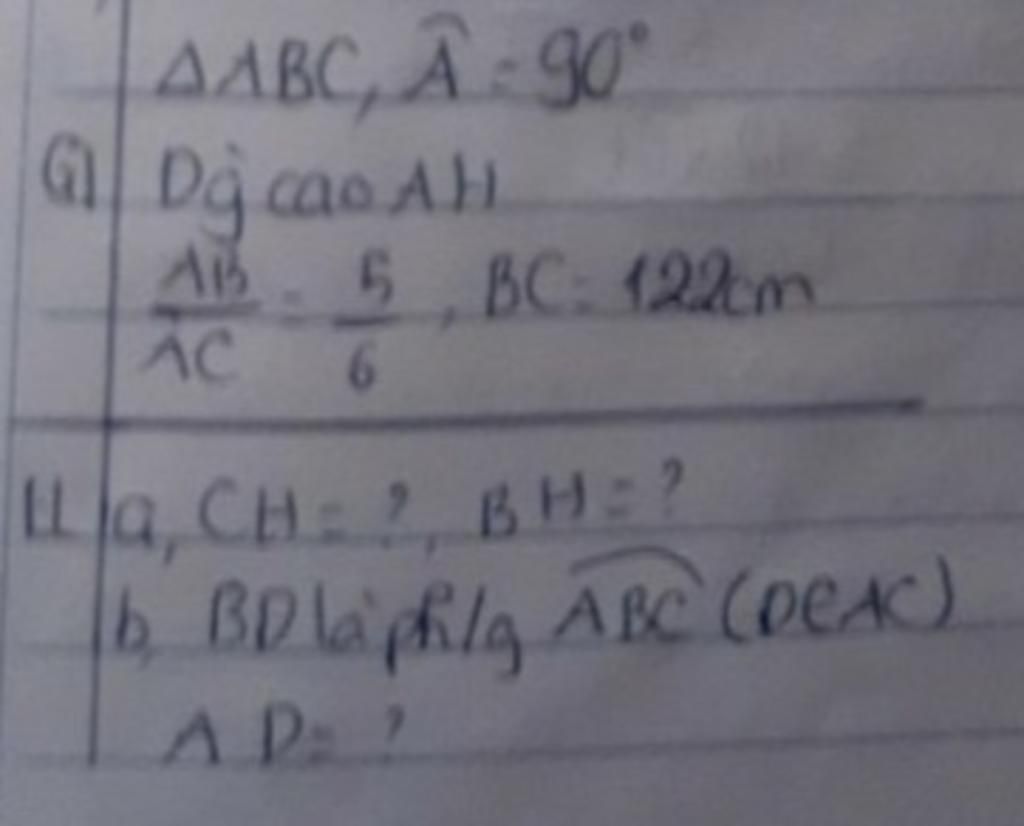 ΔABC, Â = 90°
GT Đg cao AH
AB/AC = 5/6, BC = 122cm
KL a, CH = ?, BH = ?
b, BD là ph/g ABC (D∈AC)
AD = ?